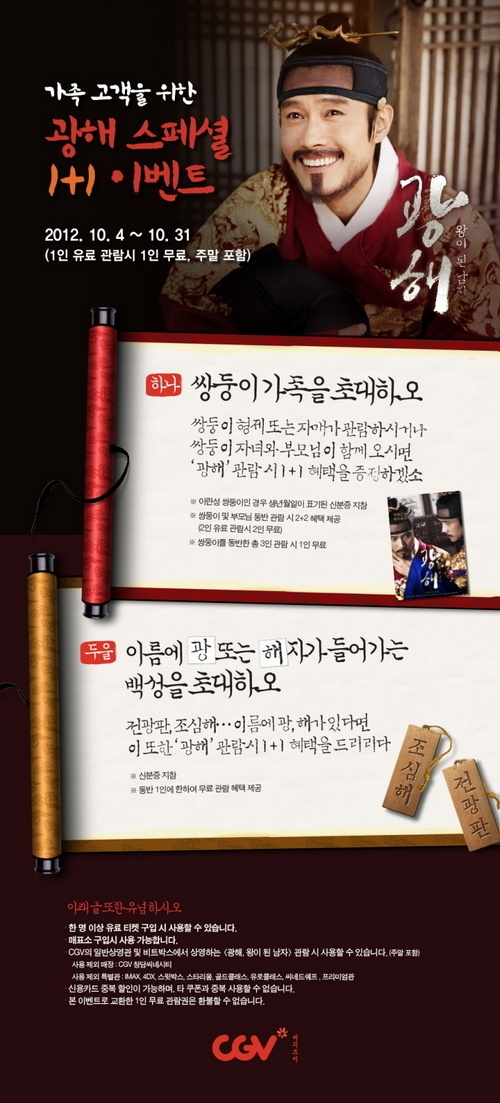 가족 고객을 위한
광해 스페셜
1+1 이벤트
2012. 10. 4 ~ 10. 31
(1인 유료 관람시 1인 무료, 주말 포함)
광해
왕이 된 남자
하나 쌍둥이 가족을 초대하오
쌍둥이 형제 또는 자매가 관람하시거나
쌍둥이 자녀와 부모님이 함께 오시면
'광해' 관람 시 1+1 혜택을 증정하겠소
※ 이란성 쌍둥이인 경우 생년월일이 표기된 신분증 지참
※ 쌍둥이 및 부모님 동반 관람 시 2+2 혜택 제공
(2인 유료 관람시 2인 무료)
※ 쌍둥이를 동반한 총 3인 관람 시 1인 무료
광해
두울 이름에 광 또는 해 자가 들어가는
백성을 초대하오
전광판, 조심해…이름에 광, 해가 있다면
이 또한 '광해' 관람 시 1+1 혜택을 드리리다
※ 신분증 지참
※ 동반 1인에 한하여 무료 관람 혜택 제공
조심해
전광판
아래 글 또한 유념하시오
· 한 명 이상 유료 티켓 구입 시 사용할 수 있습니다.
· 매표소 구입시 사용 가능합니다.
· CGV의 일반상영관 및 비트박스에서 상영하는 <광해, 왕이 된 남자> 관람 시 사용할 수 있습니다. (주말 포함)
사용 제외 매장 : CGV 청담씨네시티
사용 제외 특별관 : IMAX, 4DX, 스윗박스, 스타리움, 골드클래스, 유로클래스, 씨네드쉐프, 프리미엄관
· 신용카드 중복 할인이 가능하며, 타 쿠폰과 중복 사용할 수 없습니다.
· 본 이벤트로 교환한 1인 무료 관람권은 환불할 수 없습니다.
CGV
씨지브이